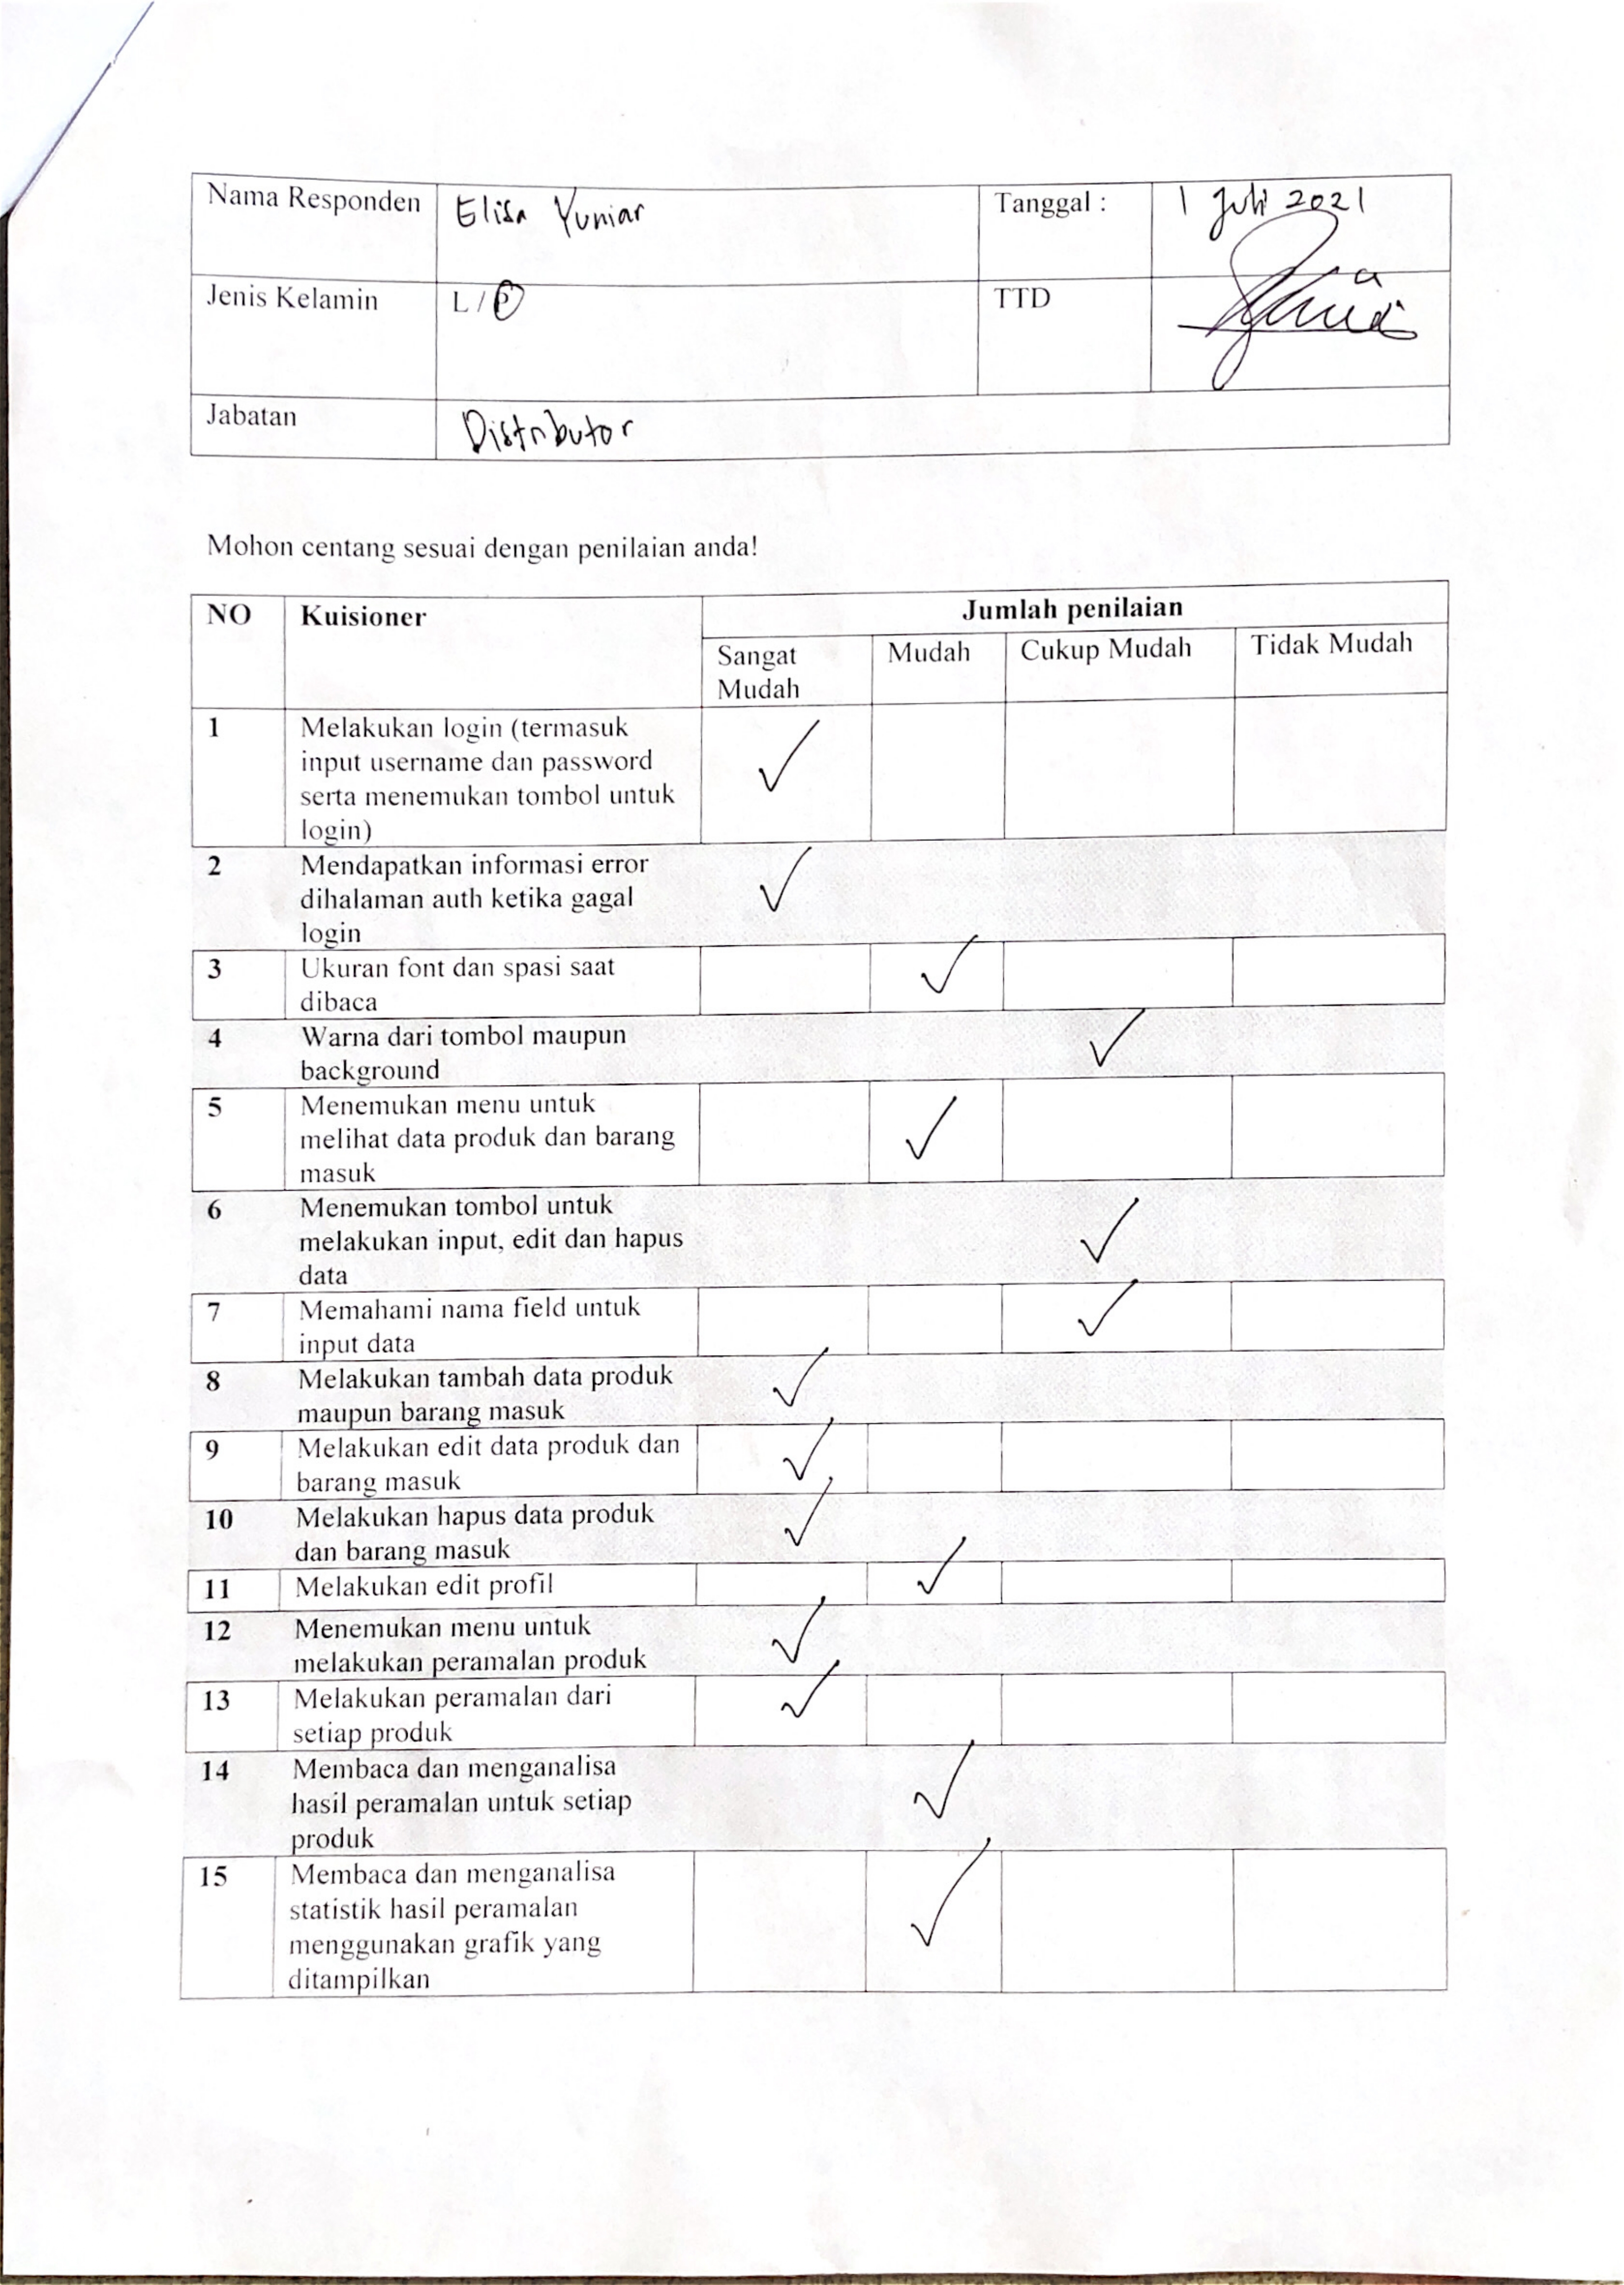 Nama Responden Elisa Yuniar Tanggal : 1 Juli 2021
Jenis Kelamin L / P TTD
Jabatan Distributor
Mohon centang sesuai dengan penilaian anda!
NO Kuisioner Jumlah penilaian
Sangat Mudah Cukup Mudah Tidak Mudah
Mudah
1 Melakukan login (termasuk
input username dan password ✓
serta menemukan tombol untuk
login)
2 Mendapatkan informasi error
dihalaman auth ketika gagal ✓
login
3 Ukuran font dan spasi saat ✓
dibaca
4 Warna dari tombol maupun ✓
background
5 Menemukan menu untuk
melihat data produk dan barang ✓
masuk
6 Menemukan tombol untuk
melakukan input, edit dan hapus ✓
data
7 Memahami nama field untuk ✓
input data
8 Melakukan tambah data produk ✓
maupun barang masuk
9 Melakukan edit data produk dan ✓
barang masuk
10 Melakukan hapus data produk ✓
dan barang masuk
11 Melakukan edit profil ✓
12 Menemukan menu untuk ✓
melakukan peramalan produk
13 Melakukan peramalan dari ✓
setiap produk
14 Membaca dan menganalisa
hasil peramalan untuk setiap ✓
produk
15 Membaca dan menganalisa
statistik hasil peramalan ✓
menggunakan grafik yang
ditampilkan